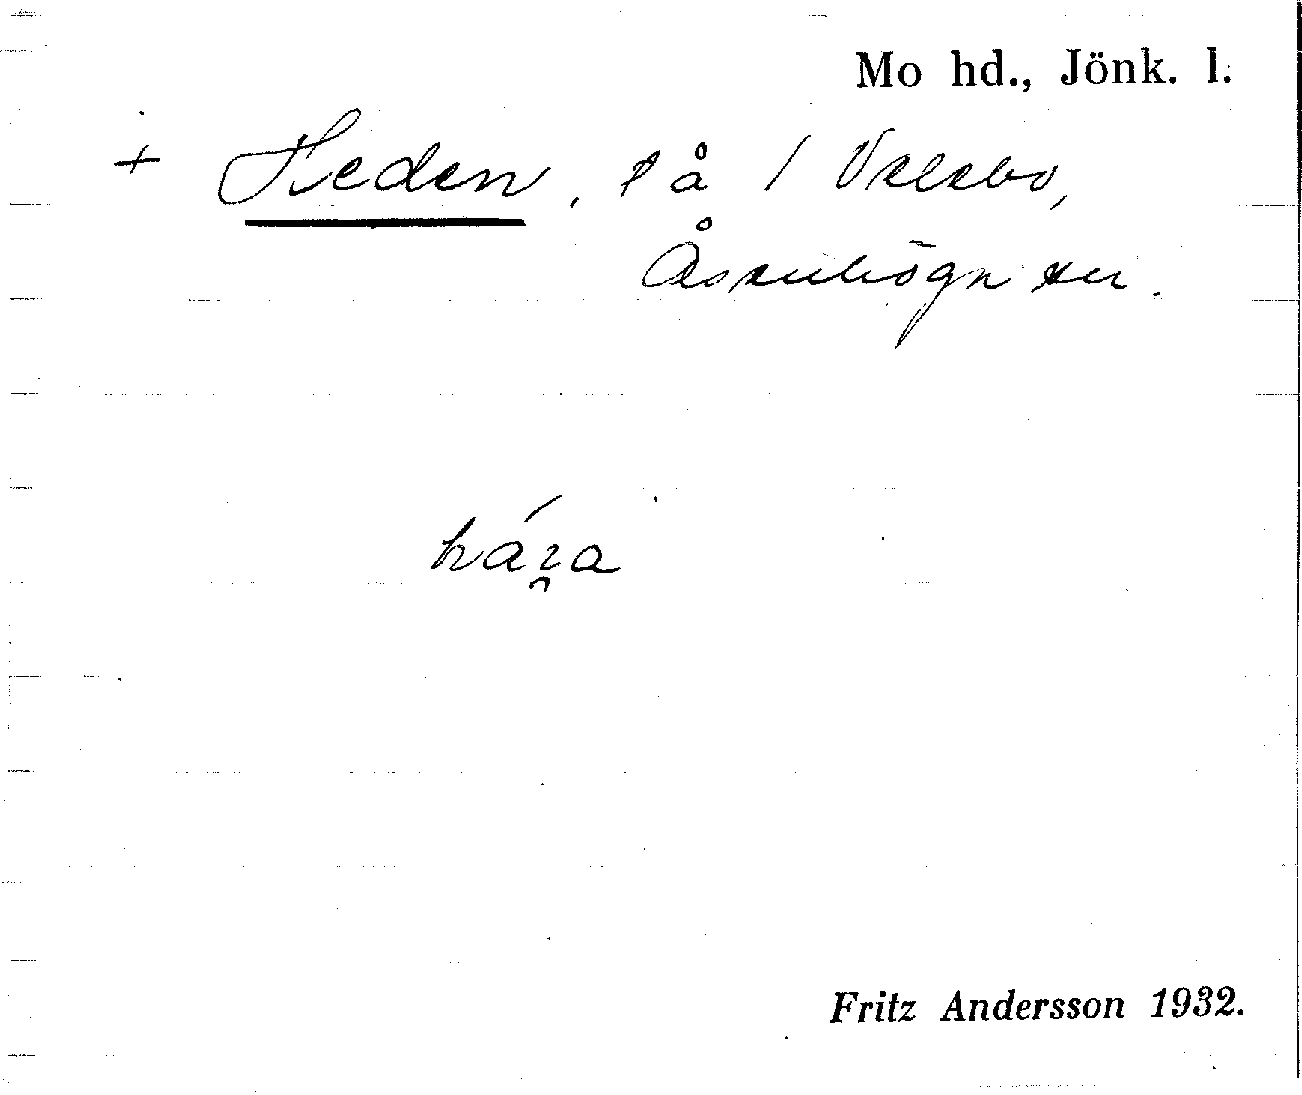 Mo hd., Jönk. l.
+ Heden, på / Valebo,
Åsenhöga sn.
Fritz Andersson 1932.